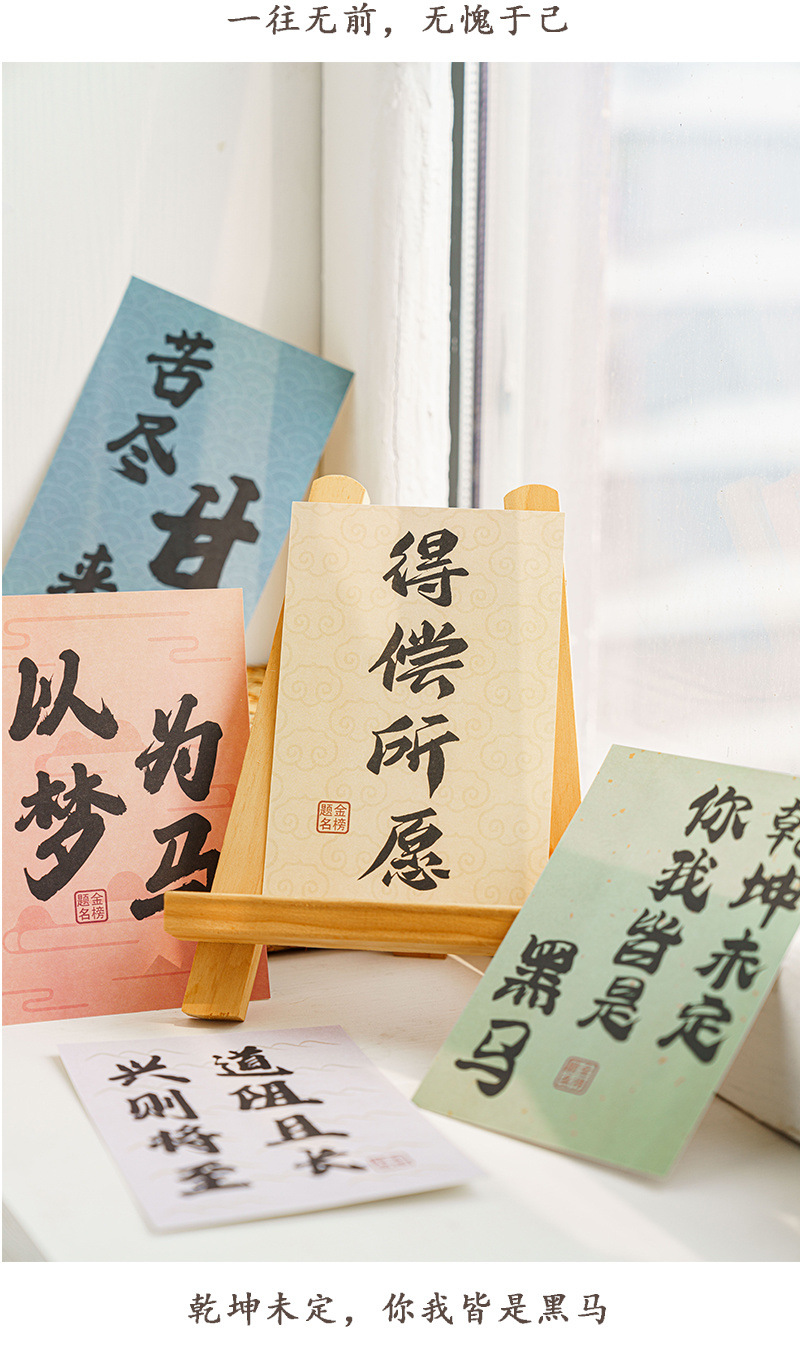 一往无前，无愧于己
苦尽
甘
来
以梦
为马
金榜
题名
得偿所愿
金榜
题名
乾坤未定
你我皆是
黑马
金榜
题名
道阻且长
兴则将至
乾坤未定，你我皆是黑马